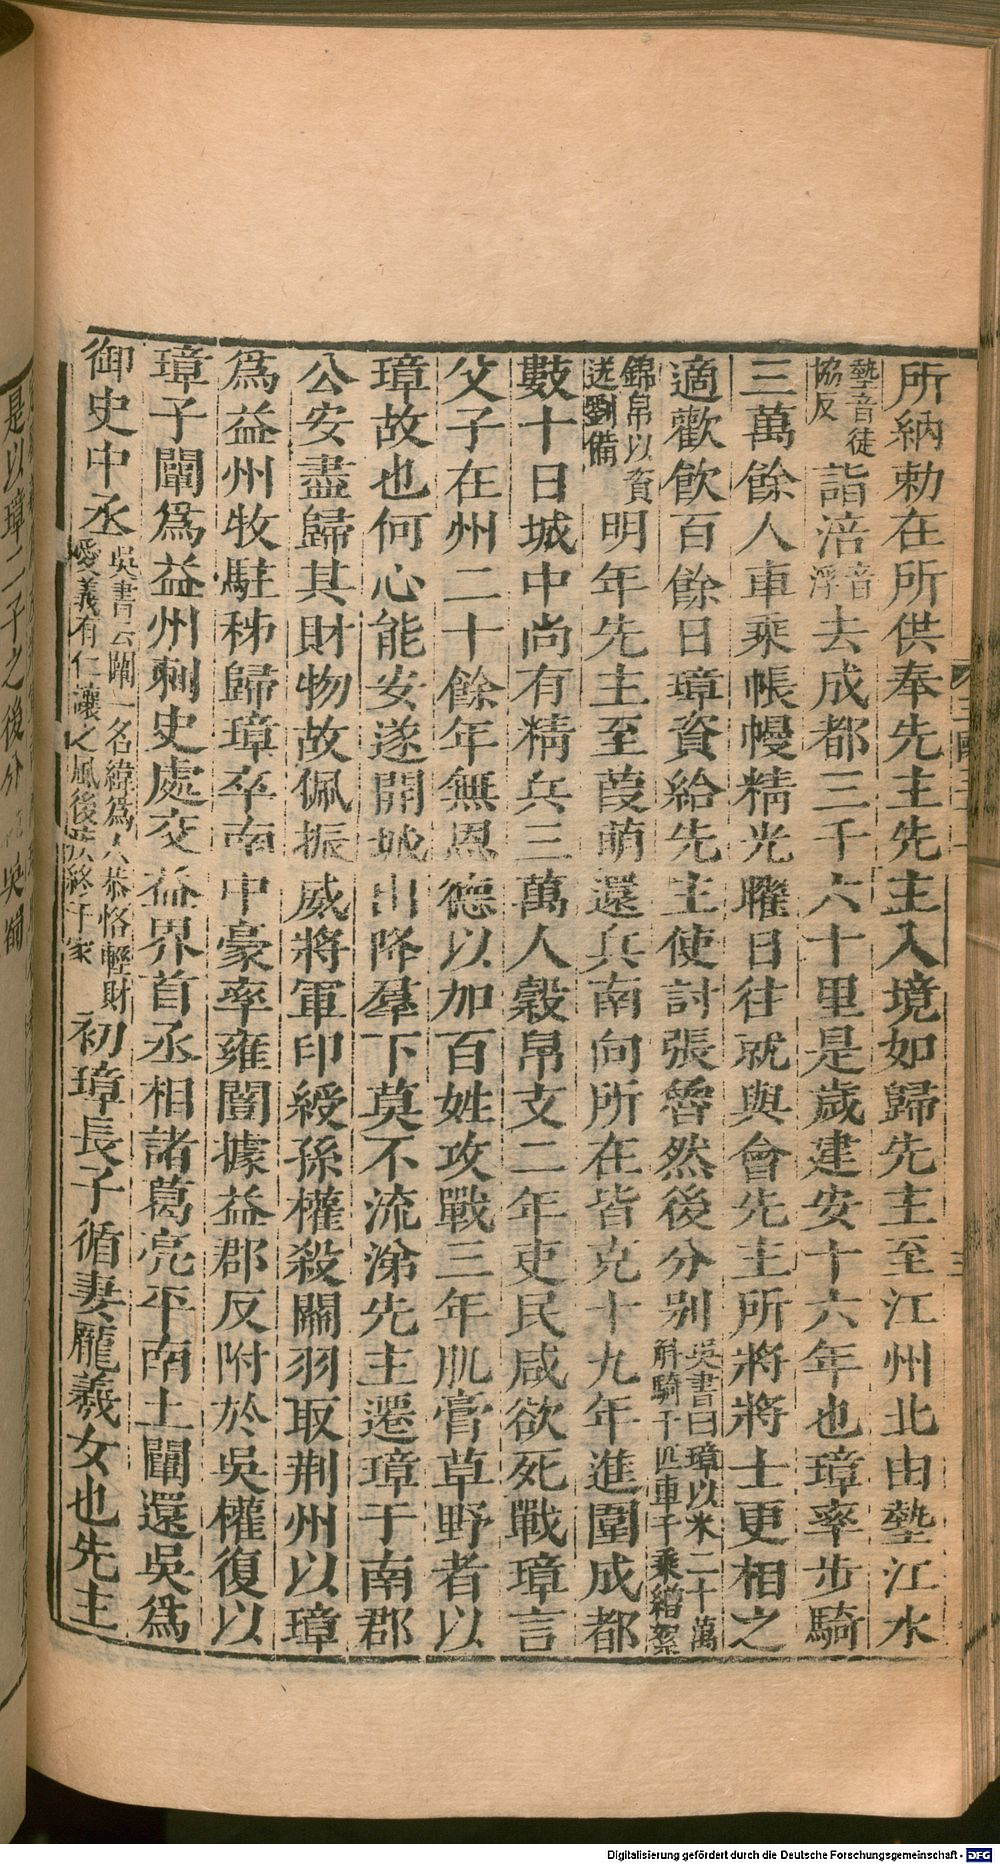 所納勅在所供奉先主先主入境如歸先主至江州北由墊江水
墊音徒協反詣涪音浮去成都三千六十里是歲建安十六年也璋率步騎
三萬餘人車乘帳幔精光曜日往就與會先主所將將士更相之
適歡飲百餘日璋資給先主使討張魯然後分别吳書曰璋以米二十萬斛騎千匹車千乘繒絮
錦帛以資送劉備明年先主至葭萌還兵南向所在皆克十九年進圍成都
數十日城中尚有精兵三萬人穀帛支二年吏民咸欲死戰璋言
父子在州二十餘年無恩德以加百姓攻戰三年肌膏草野者以
璋故也何心能安遂開城出降羣下莫不流涕先主遷璋于南郡
公安盡歸其財物故佩振威將軍印綬孫權殺關羽取荆州以璋
爲益州牧駐秭歸璋卒南中豪率雍闓據益郡反附於吳權復以
璋子闡爲益州刺史處交益界首丞相諸葛亮平南土闡還吳爲
御史中丞吳書云闡一名緯爲人恭恪輕財愛義有仁讓之風後疾終于家初璋長子循妻龐羲女也先主
是以璋二子之後分
Digitalisierung gefördert durch die Deutsche Forschungsgemeinschaft - DFG